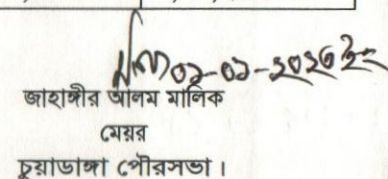 ০১-০১-২০২৩ ইং
জাহাঙ্গীর আলম মালিক
মেয়র
চুয়াডাঙ্গা পৌরসভা।